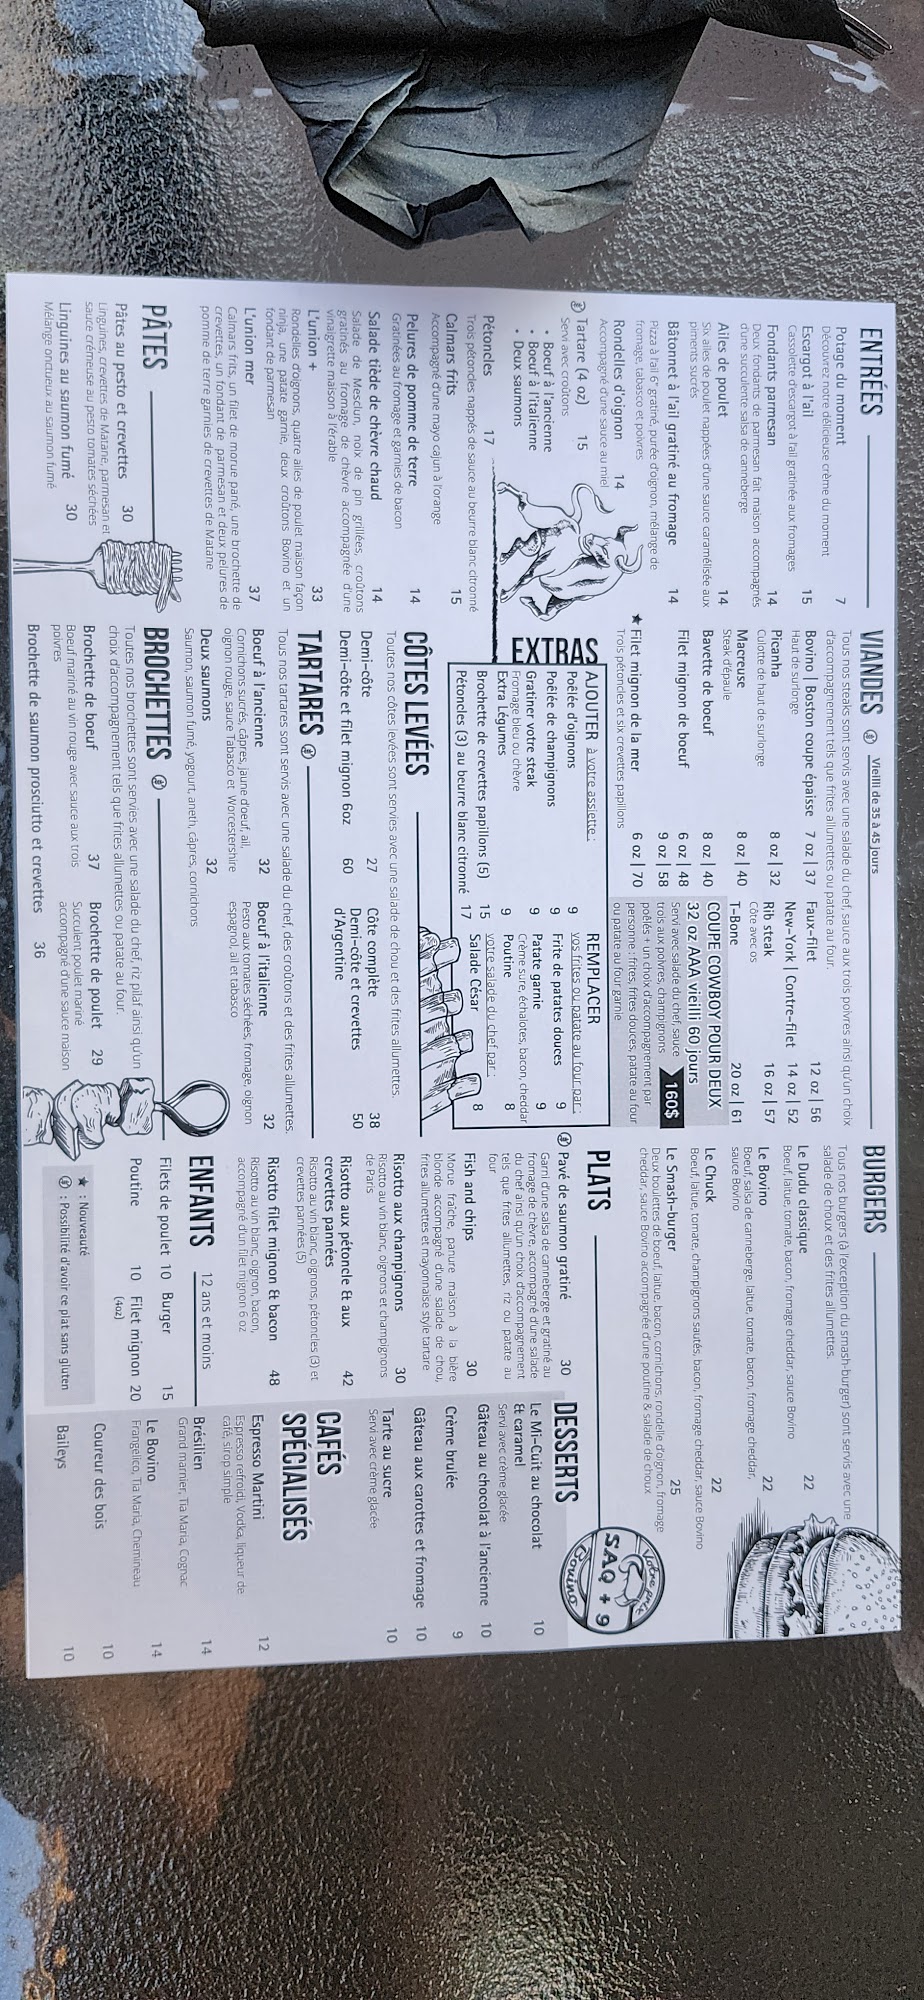 ENTRÉES
Potage du moment 7
Découvrez notre délicieuse crème du moment
Escargot à l'ail 15
Cassolette d'escargot à l'ail gratinée aux fromages
Fondants parmesan 14
Deux fondants de parmesan fait maison accompagnés
d'une succulente salsa de canneberge
Ailes de poulet 14
Six ailes de poulet nappées d'une sauce caramélisée aux
piments sucrés
Bâtonnet à l'ail gratiné au fromage 14
Pizza à l'ail 6" gratiné, purée d'oignon, mélange de
fromage, tabasco et poivres
Rondelles d'oignon 14
Accompagné d'une sauce au miel
Tartare (4 oz) 15
Servi avec croûtons
• Boeuf à l'ancienne
• Boeuf à l'italienne
• Deux saumons
Pétoncles 17
Trois pétoncles nappés de sauce au beurre blanc citronné
Calmars frits 15
Accompagné d'une mayo cajun à l'orange
Pelures de pomme de terre 14
Gratinées au fromage et garnies de bacon
Salade tiède de chèvre chaud 14
Salade de Mesclun, noix de pin grillées, croûtons
gratinés au fromage de chèvre accompagnée d'une
vinaigrette maison à l'érable
L'union + 33
Rondelles d'oignons, quatre ailes de poulet maison façon
ninja, une patate garnie, deux croûtons Bovino et un
fondant de parmesan
L'union mer 37
Calmars frits, un filet de morue pané, une brochette de
crevettes, un fondant de parmesan et deux pelures de
pomme de terre garnies de crevettes de Matane
PÂTES
Pâtes au pesto et crevettes 30
Linguines, crevettes de Matane, parmesan et
sauce crémeuse au pesto tomates séchées
Linguines au saumon fumé 30
Mélange onctueux au saumon fumé
VIANDES Vieilli de 35 à 45 jours
Tous nos steaks sont servis avec une salade du chef, sauce aux trois poivres ainsi qu'un choix
d'accompagnement tels que frites allumettes ou patate au four.
Bovino | Boston coupe épaisse 7 oz | 37
Haut de surlonge
Picanha 8 oz | 32
Culotte de haut de surlonge
Macreuse 8 oz | 40
Steak d'épaule
Bavette de boeuf 8 oz | 40
Filet mignon de boeuf 6 oz | 48
9 oz | 58
★ Filet mignon de la mer 6 oz | 70
Trois pétoncles et six crevettes papillons
Faux-filet 12 oz | 56
New-York | Contre-filet 14 oz | 52
Rib steak 16 oz | 57
Côte avec os
T-Bone 20 oz | 61
COUPE COWBOY POUR DEUX
32 oz AAA vieilli 60 jours
Servi avec salade du chef, sauce
trois aux poivres, champignons 160$
poêlés + un choix d'accompagnement par
personne : frites, frites douces, patate au four
ou patate au four garnie
EXTRAS
AJOUTER à votre assiette :
Poêlée d'oignons 9
Poêlée de champignons 9
Gratiner votre steak 9
Fromage bleu ou chèvre
Extra Légumes 9
Brochette de crevettes papillons (5) 15
Pétoncles (3) au beurre blanc citronné 17
REMPLACER
vos frites ou patate au four par :
Frite de patates douces 9
Patate garnie 9
Crème sure, échalotes, bacon, cheddar
Poutine 8
votre salade du chef par :
Salade César 8
CÔTES LEVÉES
Toutes nos côtes levées sont servies avec une salade de chou et des frites allumettes.
Demi-côte 27
Demi-côte et filet mignon 6oz 60
Côte complète 38
Demi-côte et crevettes 50
d'Argentine
TARTARES
Tous nos tartares sont servis avec une salade du chef, des croûtons et des frites allumettes.
Boeuf à l'ancienne 32
Cornichons sucrés, câpres, jaune d'oeuf, ail,
oignon rouge, sauce Tabasco et Worcestershire
Deux saumons 32
Saumon, saumon fumé, yogourt, aneth, câpres, cornichons
Boeuf à l'italienne 32
Pesto aux tomates séchées, fromage, oignon
espagnol, ail et tabasco
BROCHETTES
Toutes nos brochettes sont servies avec une salade du chef, riz pilaf ainsi qu'un
choix d'accompagnement tels que frites allumettes ou patate au four.
Brochette de boeuf 37
Boeuf mariné au vin rouge avec sauce aux trois
poivres
Brochette de saumon prosciutto et crevettes 36
Brochette de poulet 29
Succulent poulet mariné
accompagné d'une sauce maison
BURGERS
Tous nos burgers (à l'exception du smash-burger) sont servis avec une
salade de choux et des frites allumettes.
Le Dudu classique 22
Boeuf, laitue, tomato, bacon, fromage cheddar, sauce Bovino
Le Bovino 22
Boeuf, salsa de canneberge, laitue, tomate, bacon, fromage cheddar,
sauce Bovino
Le Chuck 22
Boeuf, laitue, tomate, champignons sautés, bacon, fromage cheddar, sauce Bovino
Le Smash-burger 25
Deux boulettes de boeuf, laitue, bacon, cornichons, rondelle d'oignon, fromage
cheddar, sauce Bovino accompagnée d'une poutine & salade de choux
PLATS
Pavé de saumon gratiné 30
Garni d'une salsa de canneberge et gratiné au
fromage de chèvre, accompagné d'une salade
du chef ainsi qu'un choix d'accompagnement
tels que frites allumettes, riz ou patate au
four
Fish and chips 30
Morue fraîche, panure maison à la bière
blonde accompagné d'une salade de chou,
frites allumettes et mayonnaise style tartare
Risotto aux champignons 30
Risotto au vin blanc, oignons et champignons
de Paris
Risotto aux pétoncle & aux
crevettes pannées 42
Risotto au vin blanc, oignons, pétoncles (3) et
crevettes pannées (5)
Risotto filet mignon & bacon 48
Risotto au vin blanc, oignon, bacon,
accompagné d'un filet mignon 6 oz
ENFANTS 12 ans et moins
Filets de poulet 10
Poutine 10
Burger 15
Filet mignon 20
(4oz)
★ : Nouveauté
: Possibilité d'avoir ce plat sans gluten
Votre prix
SAQ + 9
Bovino
DESSERTS
Le Mi-Cuit au chocolat
& caramel 10
Servi avec crème glacée
Gâteau au chocolat à l'ancienne 10
Crème brulée 9
Gâteau aux carottes et fromage 10
Tarte au sucre 10
Servi avec crème glacée
CAFÉS
SPÉCIALISÉS
Espresso Martini 12
Espresso refroidi, Vodka, liqueur de
café, sirop simple
Brésilien 14
Grand marnier, Tia Maria, Cognac
Le Bovino 14
Frangelico, Tia Maria, Chemineau
Coureur des bois 10
Baileys 10